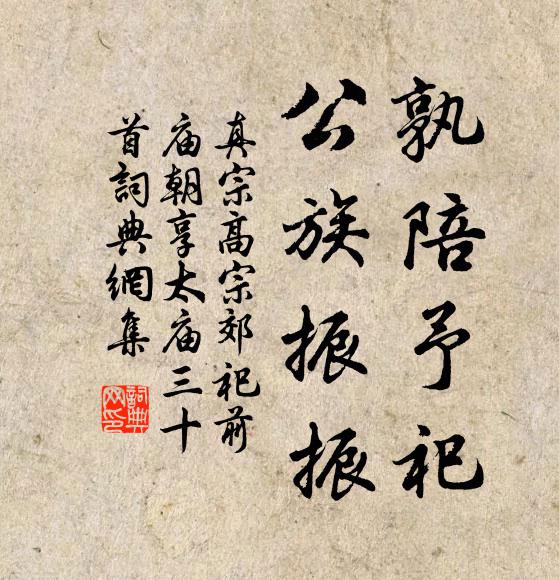 孰陪予祀
公族振振
真宗高宗郊祀前
庙朝享太庙三十
首詞典網集
詞典
网印